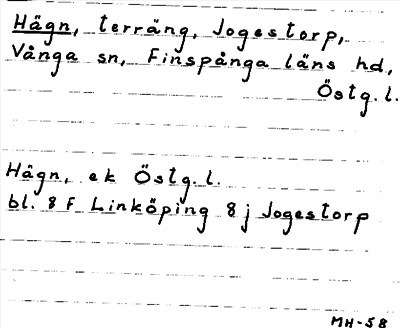 Hägn, terräng, Jogestorp,
Vånga sn, Finspånga läns hd,
Östg. l.
Hägn, ek Östg. l.
bl. 8 F Linköping 8 j Jogestorp
MH-58